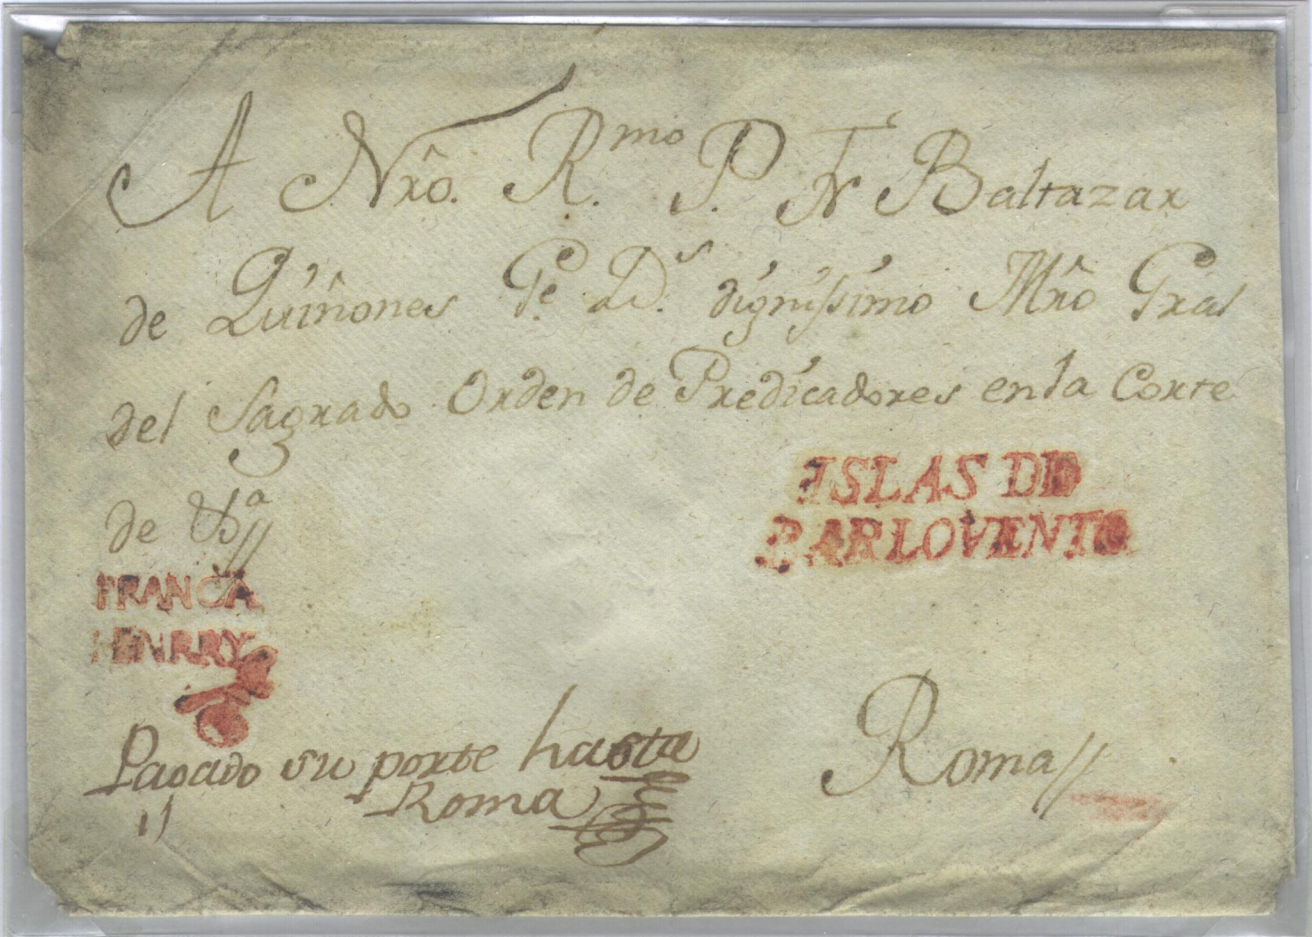 A Nrô. R.mo P. Fr Baltazar
de Quiñones Ge. Ds. digníssimo Mrô Gral
del Sagrado Orden de Predicadores en la Corte
de
ISLAS DE
BARLOVENTO
FRANCA
HENRRY
Pagado su porte hasta
Roma
Roma//